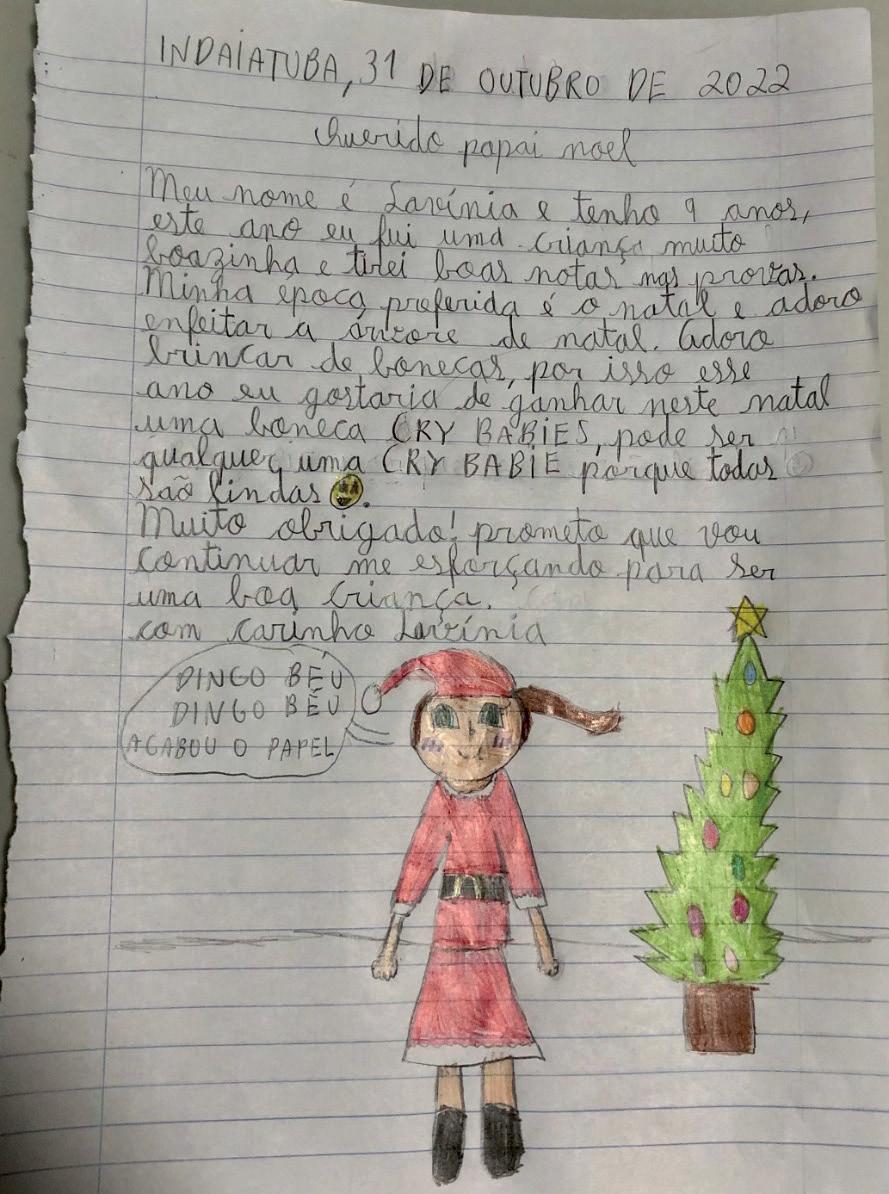 INDAIATUBA, 31 DE OUTUBRO DE 2022
Querido papai noel
Meu nome é Lavínia e tenho 9 anos,
este ano eu fui uma criança muito
boazinha e tirei boas notas nas provas.
Minha epoca preferida é o natal e adoro
enfeitar a árvore de natal. Adoro
brincar de bonecas, por isso esse
ano eu gostaria de ganhar neste natal
uma boneca CRY BABIES, pode ser
qualquer uma CRY BABIE porque todas
são lindas 😃.
Muito obrigado! prometo que vou
continuar me esforçando para ser
uma boa criança.
com carinho Lavínia
DINGO BÉU
DINGO BÉU
ACABOU O PAPEL